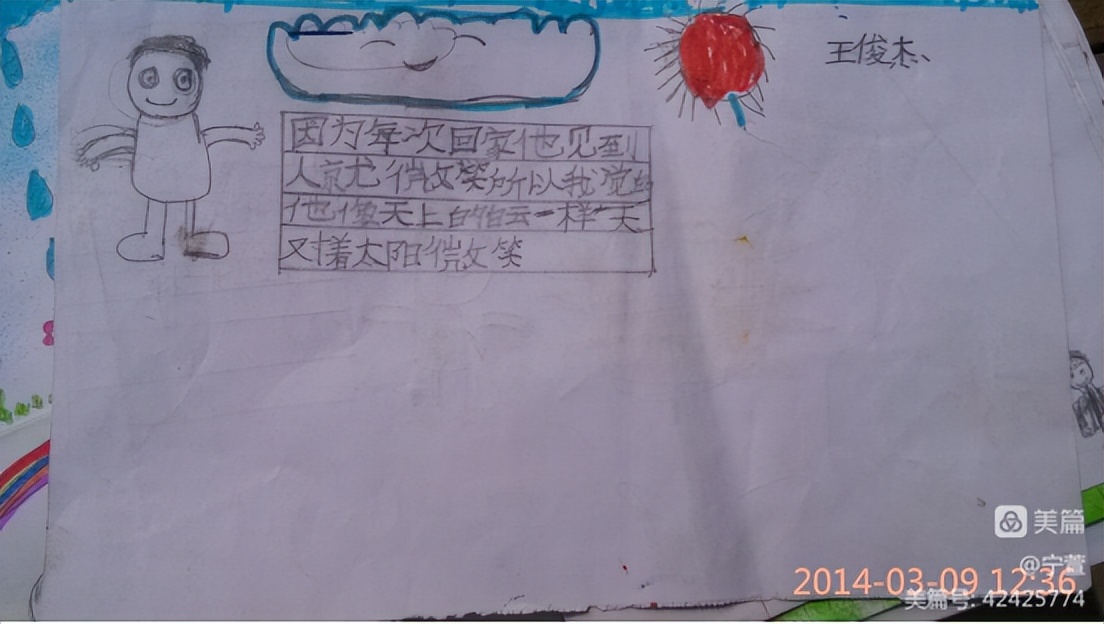 王俊杰
因为每次回家他见到
人就微笑所以我觉的
他像天上的白云一样天天
对着太阳微笑
美篇
@宁萱
2014-03-09 12:36
美篇号: 42425774